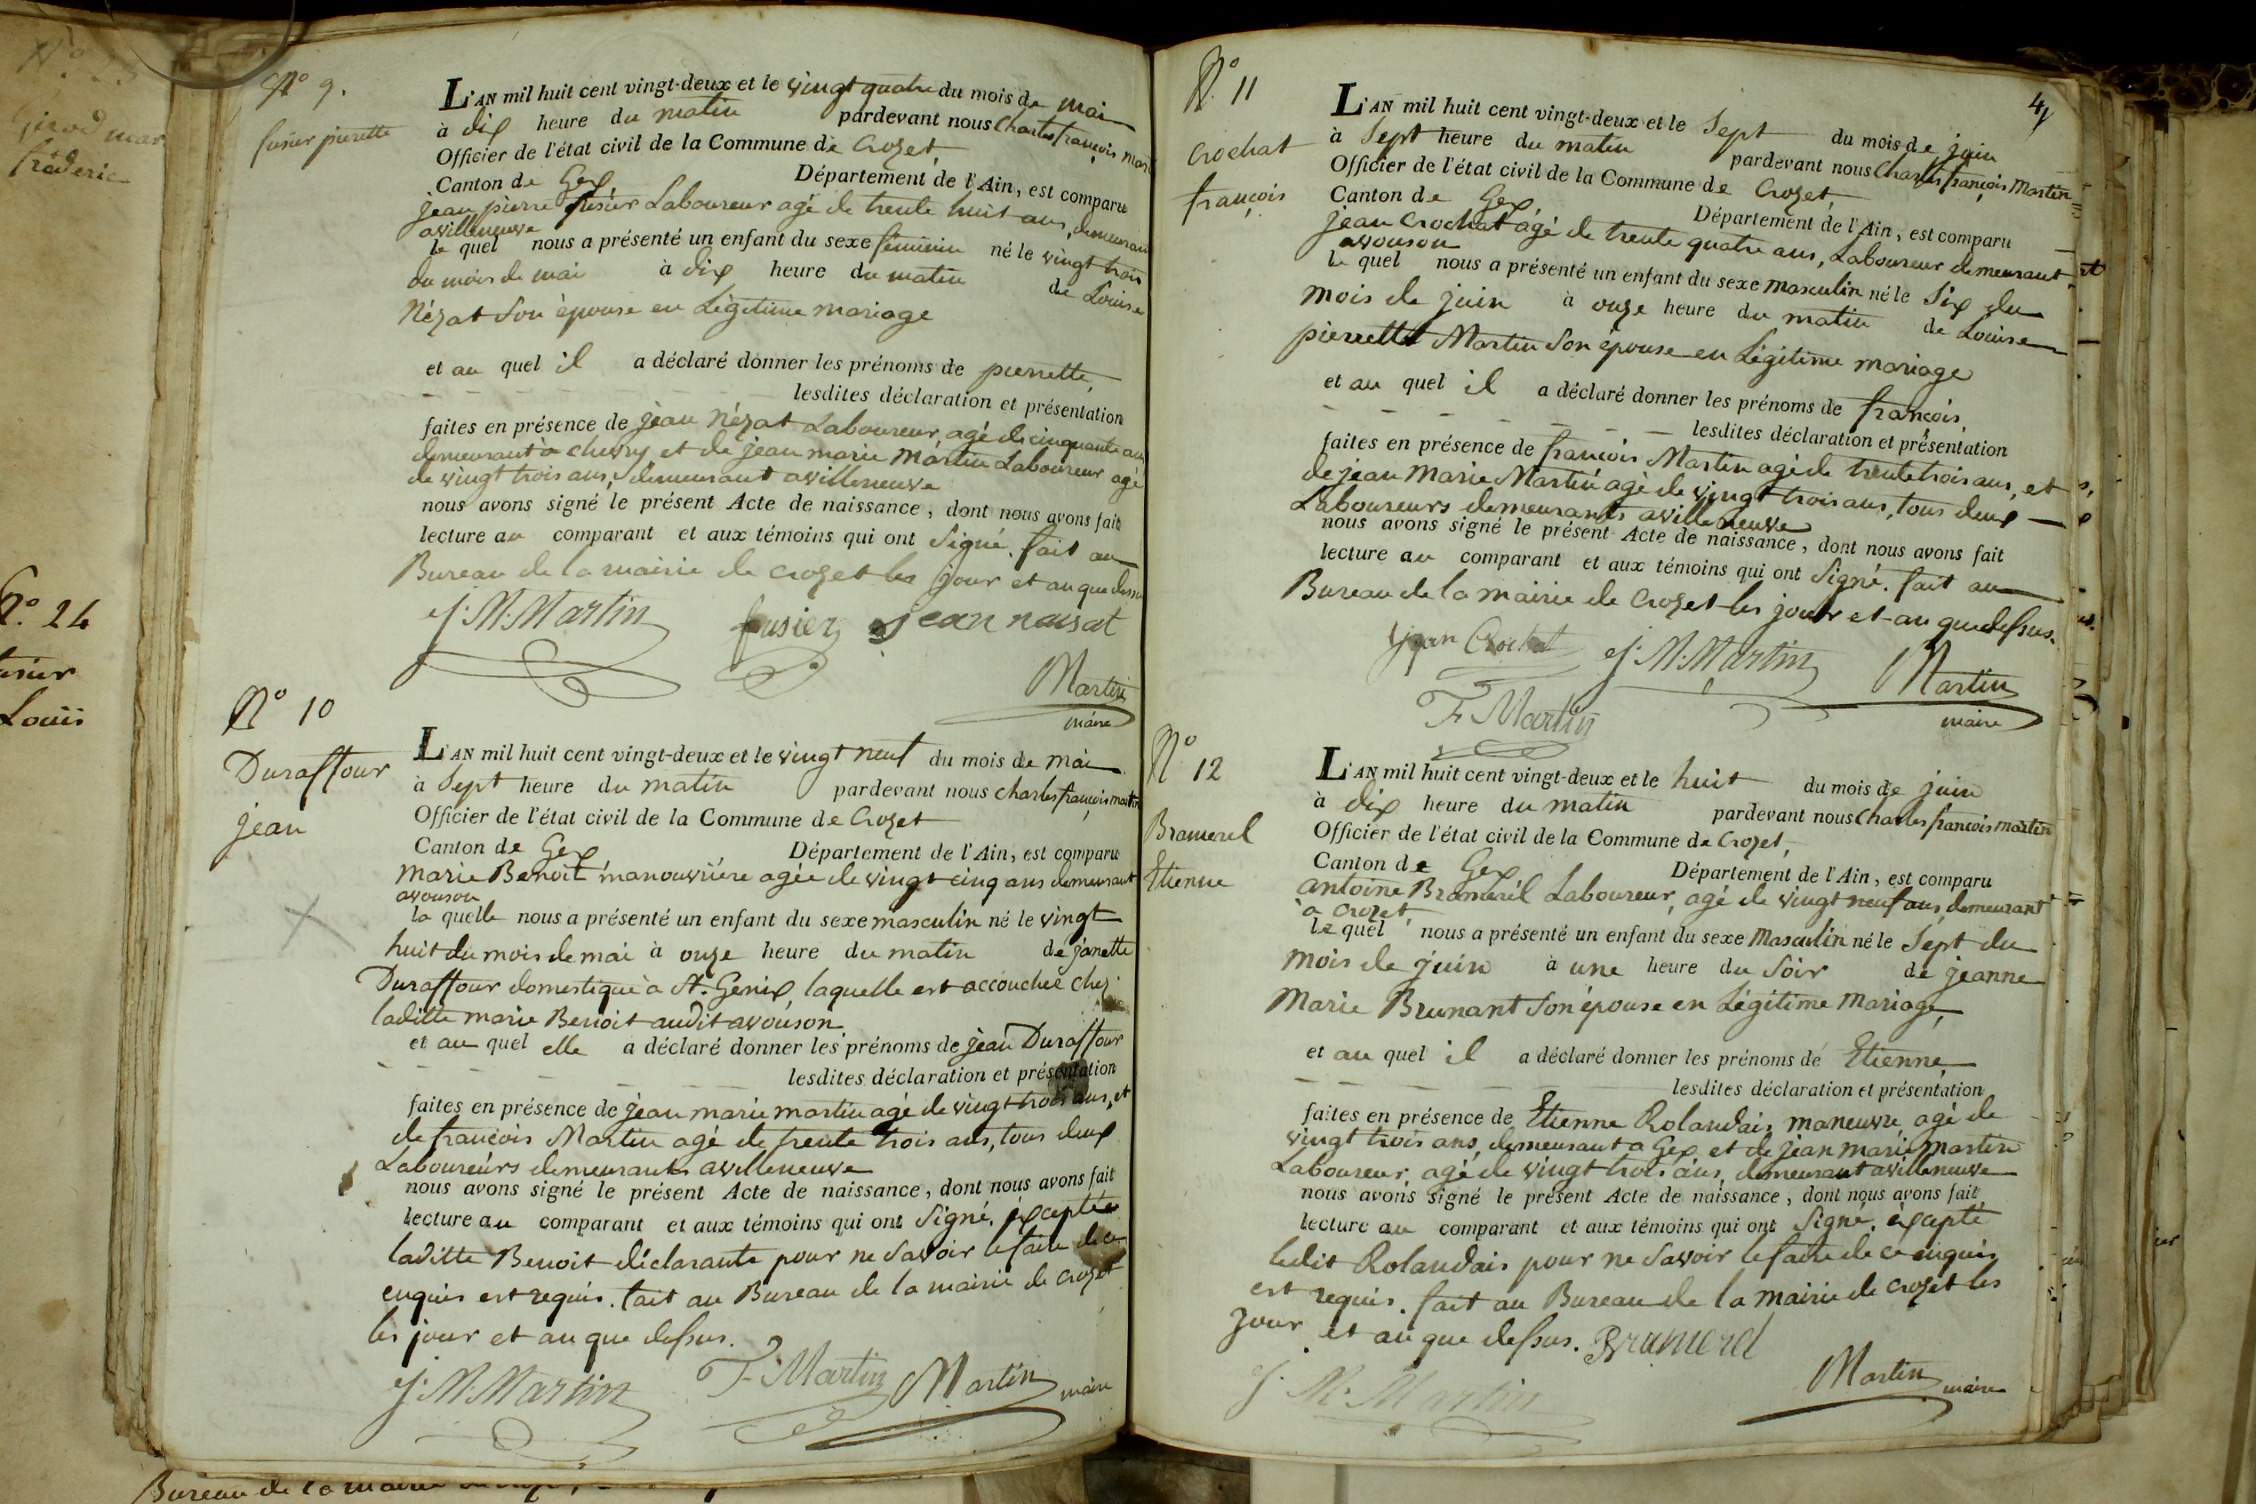 N° 23
Girod mar
fréderic
N°. 24
fusier
Louis
N° 9.
fusier pierette
L'AN mil huit cent vingt-deux et le vingt quatre du mois de mai
à dix heure du matin pardevant nous Charles françois mart
Officier de l'état civil de la Commune de Crozet,
Canton de Gex, Département de l'Ain, est comparu
jean pierre fusier Laboureur agé de trente huit ans, demeurant
avilleneuve
le quel nous a présenté un enfant du sexe féminin né le vingt trois
du mois de mai à dix heure du matin de Louise
Nézat son épouse en Légitime mariage
et au quel il a déclaré donner les prénoms de pierrette,
lesdites déclaration et présentation
faites en présence de jean Nézat Laboureur, agé de cinquante ans
demeurant à chevry et de jean marie Martin Laboureur agé
de vingt trois ans, demeurant avilleneuve
nous avons signé le présent Acte de naissance, dont nous avons fait
lecture au comparant et aux témoins qui ont Signé. fait au
Bureau de la mairie de crozet les jour et an que dessus
J. M. Martin fusier jean naisat
Martin
maire
N° 10
Duraffour
jean
L'AN mil huit cent vingt-deux et le vingt neuf du mois de mai
à Sept heure du matin pardevant nous charles françois martin
Officier de l'état civil de la Commune de Crozet
Canton de Gex Département de l'Ain, est comparu
Marie Benoit manouvrière agée de vingt cinq ans demeurant
avouson
la quelle nous a présenté un enfant du sexe masculin né le vingt
huit du mois de mai à onze heure du matin de janette
Duraffour domestique à St. Genix, laquelle est accouchée chez
laditte marie Benoit audit avouson
et au quel elle a déclaré donner les prénoms de jean Duraffour
lesdites déclaration et présentation
faites en présence de jean marie martin agé de vingt trois ans, et
de françois Martin agé de trente trois ans, tous deux
Laboureurs demeurants avilleneuve
nous avons signé le présent Acte de naissance, dont nous avons fait
lecture au comparant et aux témoins qui ont Signé. excepté
laditte Benoit déclarante pour ne Savoir le faire de ce
enquis est requis. fait au Bureau de la mairie de crozet
les jour et an que dessus.
J. M. Martin F. Martin Martin maire
Bureau de la mairie
N° 11
crochat
françois
4
L'AN mil huit cent vingt-deux et le Sept du mois de juin
à Sept heure du matin pardevant nous Charles françois Martin
Officier de l'état civil de la Commune de Crozet,
Canton de Gex, Département de l'Ain, est comparu
jean Crochat âgé de trente quatre ans, Laboureur demeurant
avouson
le quel nous a présenté un enfant du sexe masculin né le Six du
mois de juin à onze heure du matin de Louise
pierrette Martin son épouse en Légitime mariage
et au quel il a déclaré donner les prénoms de françois,
lesdites déclaration et présentation
faites en présence de françois Martin agé de trente trois ans, et
de jean Marie Martin agé de vingt trois ans, tous deux
Laboureurs demeurants avilleneuve
nous avons signé le présent Acte de naissance, dont nous avons fait
lecture au comparant et aux témoins qui ont Signé. fait au
Bureau de la mairie de Crozet les jour et an que dessus.
jean Crochat J. M. Martin Martin
F. Martin maire
N° 12
Bramerel
Etienne
L'AN mil huit cent vingt-deux et le huit du mois de juin
à dix heure du matin pardevant nous Charles françois martin
Officier de l'état civil de la Commune de Crozet,
Canton de Gex, Département de l'Ain, est comparu
antoine Bramerél Laboureur, agé de vingt neuf ans, demeurant
a crozet,
le quel nous a présenté un enfant du sexe Masculin né le Sept du
mois de juin à une heure du Soir de jeanne
Marie Brunant Son épouse en Légitime Mariage,
et au quel il a déclaré donner les prénoms de Etienne,
lesdites déclaration et présentation
faites en présence de Etienne Rolandais, maneuvre, agé de
vingt trois ans, demeurant a Gex et de jean marie martin
Laboureur, agé de vingt trois ans, demeurant avilleneuve
nous avons signé le présent Acte de naissance, dont nous avons fait
lecture au comparant et aux témoins qui ont Signé. excepté
ledit Rolandais pour ne Savoir le faire de ce enquis
est requis. fait au Bureau de la mairie de crozet les
jour et an que dessus. Bramerel
J. M. Martin Martin maire